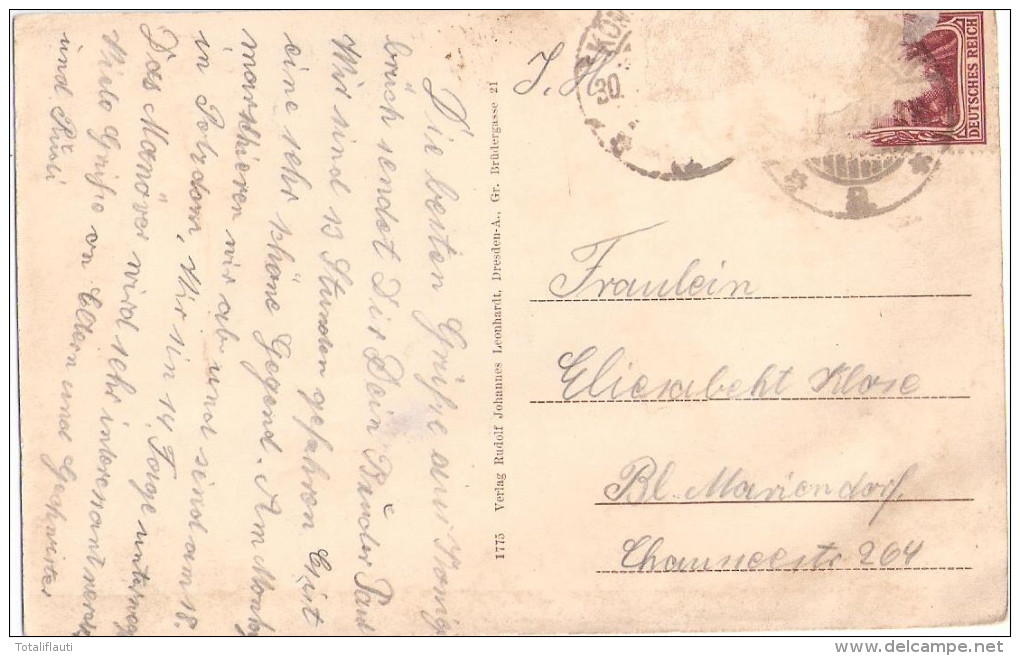 Die besten Grüße aus König
brück sendet Dir Dein Bruder Paul
Wir sind 13 Stunden gefahren. Es ist
eine sehr schöne Gegend. Am Montag
marschieren wir ab und sind am 18.
in Potzdom, Wir sin 14 Tage unterwegs
Das Manöver wird sehr interesant werden
Viele Grüße an Eltern und Geschwister
und
1775 Verlag Rudolf Johannes Leonhardt, Dresden-A., Gr. Brüdergasse 21
KÖN
30.
a.
DEUTSCHES REICH
Fräulein
Eliesabeht Klose
Bl. Mariendorf
Chausseestr 264
Totaliflauti
delcampe.net